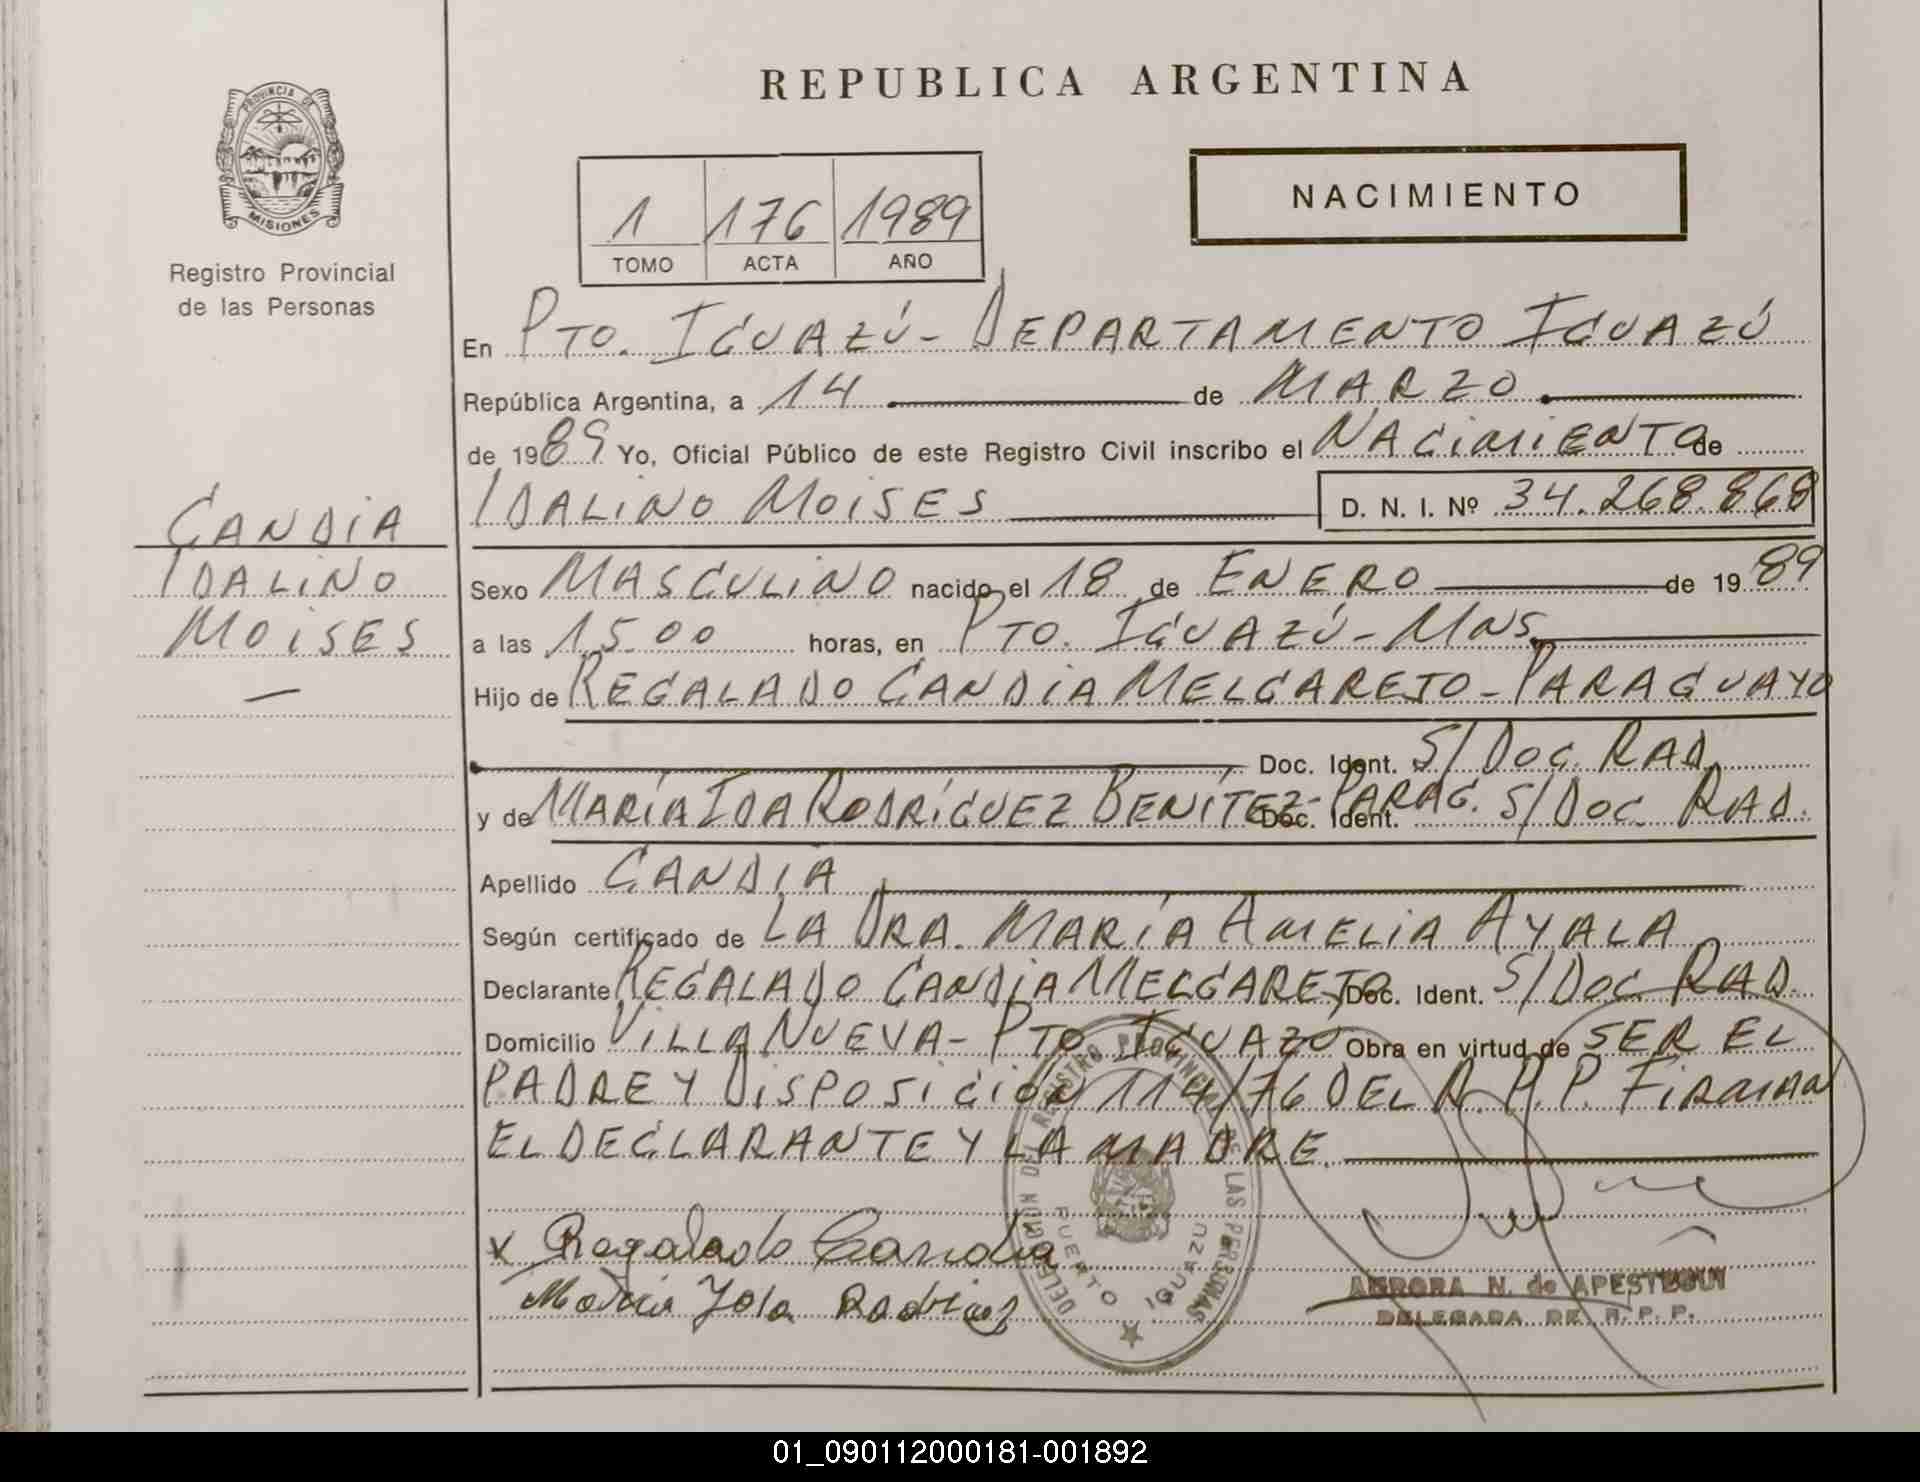 REPUBLICA ARGENTINA
PROVINCIA DE
MISIONES
Registro Provincial
de las Personas
NACIMIENTO
1 176 1989
TOMO ACTA AÑO
En PTO. IGUAZÚ - DEPARTAMENTO IGUAZÚ
República Argentina, a 14 de MARZO
de 1989 Yo, Oficial Público de este Registro Civil inscribo el NACIMIENTO de
IDALINO MOISES D. N. I. Nº 34.268.868
CANDIA
IDALINO
MOISES
Sexo MASCULINO nacido el 18 de ENERO de 1989
a las 15.00 horas, en PTO. IGUAZÚ - MNS.
Hijo de REGALADO CANDIA MELGAREJO - PARAGUAYO
Doc. Ident. S/DOC. RAD.
y de MARÍA IDA RODRÍGUEZ BENÍTEZ - PARAG. Doc. Ident. S/DOC. RAD.
Apellido CANDIA
Según certificado de LA DRA. MARÍA AMELIA AYALA
Declarante REGALADO CANDIA MELGAREJO Doc. Ident. S/DOC. RAD.
Domicilio VILLA NUEVA - PTO IGUAZÚ Obra en virtud de SER EL
PADRE Y DISPOSICIÓN 114/76 DEL R.P.P. FIRMAN
EL DECLARANTE Y LA MADRE.
DELEGACION DEL REGISTRO PROVINCIAL DE LAS PERSONAS
PUERTO IGUAZU
x Regalado Candia
María
AURORA N. de APESTEGUI
DELEGADA DE R. P. P.
01_090112000181-001892